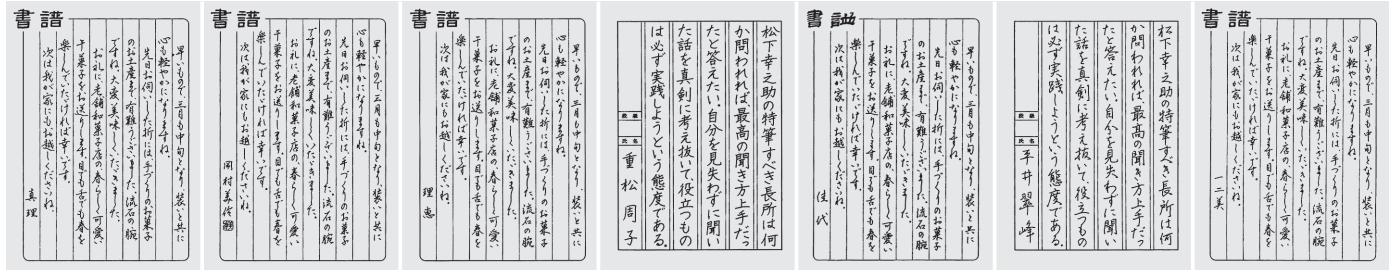 書譜
早いもので、三月も中旬となり、装いと共に
心も軽やかになりますね。
先日お伺いした折には、手づくりのお菓子
のお土産まで、有難うございました。流石の腕
ですね。大変美味しくいただきました。
お礼に、老舗和菓子店の、春らしく可愛い
干菓子をお送りします。目でも舌でも春を
楽しんでいただければ幸いです。
次は我が家にもお越しくださいね。
真理
書譜
早いもので、三月も中旬となり、装いと共に
心も軽やかになりますね。
先日お伺いした折には、手づくりのお菓子
のお土産まで、有難うございました。流石の腕
ですね。大変美味しくいただきました。
お礼に、老舗和菓子店の、春らしく可愛い
干菓子をお送りします。目でも舌でも春を
楽しんでいただければ幸いです。
次は我が家にもお越しくださいね。
書譜
早いもので、三月も中旬となり、装いと共に
心も軽やかになりますね。
先日お伺いした折には、手づくりのお菓子
のお土産まで、有難うございました。流石の腕
ですね。大変美味しくいただきました。
お礼に、老舗和菓子店の、春らしく可愛い
干菓子をお送りします。目でも舌でも春を
楽しんでいただければ幸いです。
次は我が家にもお越しくださいね。
理惠
松下幸之助の特筆すべき長所は何
か問われれば、最高の聞き方上手だっ
たと答えたい。自分を見失わずに聞い
た話を真剣に考え抜いて、役立つもの
は必ず実践しようという態度である。
段級 氏名 重松周子
書譜
早いもので、三月も中旬となり、装いと共に
心も軽やかになりますね。
先日お伺いした折には、手づくりのお菓子
のお土産まで、有難うございました。流石の腕
ですね。大変美味しくいただきました。
お礼に、老舗和菓子店の、春らしく可愛い
干菓子をお送りします。目でも舌でも春を
楽しんでいただければ幸いです。
次は我が家にもお越しくださいね。
佳代
松下幸之助の特筆すべき長所は何
か問われれば、最高の聞き方上手だっ
たと答えたい。自分を見失わずに聞い
た話を真剣に考え抜いて、役立つもの
は必ず実践しようという態度である。
段級 氏名 平井翠峰
書譜
早いもので、三月も中旬となり、装いと共に
心も軽やかになりますね。
先日お伺いした折には、手づくりのお菓子
のお土産まで、有難うございました。流石の腕
ですね。大変美味しくいただきました。
お礼に、老舗和菓子店の、春らしく可愛い
干菓子をお送りします。目でも舌でも春を
楽しんでいただければ幸いです。
次は我が家にもお越しくださいね。
一二美